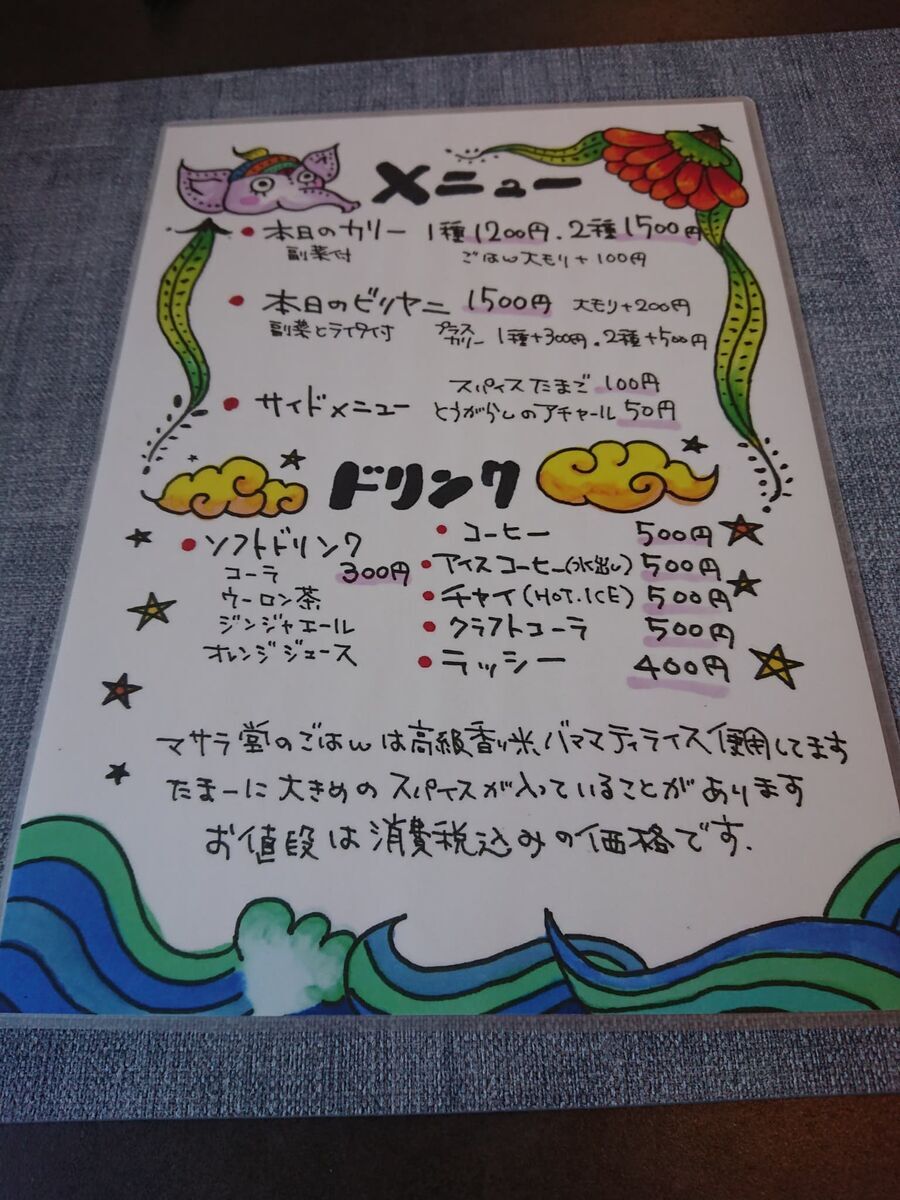 メニュー
●本日のカリー 1種1200円.2種1500円
副菜付 ごはん大モリ+100円
●本日のビリヤニ 1500円 大モリ+200円
副菜とライタ付 プラスカリー 1種+300円.2種+500円
●サイドメニュー スパイスたまご 100円
とうがらしのアチャール 50円
ドリンク
●ソフトドリンク 300円
コーラ
ウーロン茶
ジンジャエール
オレンジジュース
●コーヒー 500円
●アイスコーヒー(水出し) 500円
●チャイ(HOT.ICE) 500円
●クラフトコーラ 500円
●ラッシー 400円
マサラ堂のごはんは高級香り米バママティライス使用してます
たまーに大きめのスパイスが入っていることがあります
お値段は消費税込みの価格です.